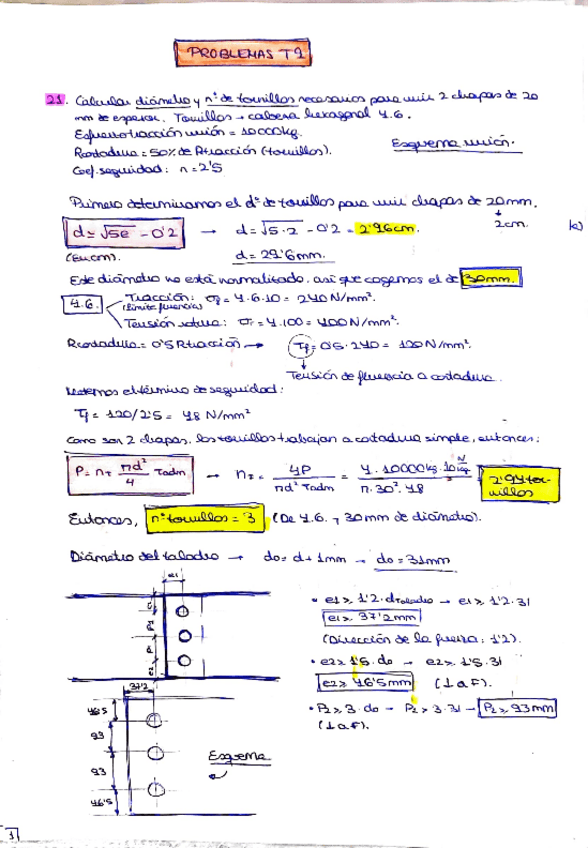 PROBLEMAS T2
21. Calcular diámetro y nº de tornillos necesarios para unir 2 chapas de 20
mm de espesor. Tornillos → cabeza hexagonal 4.6.
Esfuerzo tracción unión = 10000kg.
Rcortadura = 50% de Rtracción (tornillos).
Coef. seguridad: n = 2'5
Esquema unión.
Primero determinamos el dº de tornillos para unir chapas de 20mm.
2cm.
d = √5e - 0'2 → d = √5·2 - 0'2 = 2'96cm.
(En cm). d = 29'6mm.
Este diámetro no está normalizado, así que cogemos el de 30mm.
4.6. Tracción: σf = 4·6·10 = 240 N/mm².
(límite fluencia)
Tensión rotura: σr = 4·100 = 400 N/mm².
Rcortadura = 0'5 Rtracción → τf = 0'5·240 = 120 N/mm².
Tensión de fluencia a cortadura.
Metemos el término de seguridad:
τf = 120/2'5 = 48 N/mm²
Como son 2 chapas, los tornillos trabajan a cortadura simple, entonces:
P = nτ πd²/4 τadm → nτ = 4P/πd² τadm = 4·10000kg·10 N/kg / π·30²·48 = 2'94 tornillos
Entonces, nº tornillos = 3 (De 4.6. y 30mm de diámetro).
Diámetro del taladro → do = d + 1mm → do = 31mm
e1
• e1 ≥ 1'2·dtaladro → e1 ≥ 1'2·31
e1 ≥ 37'2mm
(Dirección de la fuerza: 1'2).
• e2 ≥ 1'5·do → e2 ≥ 1'5·31
e2 ≥ 46'5mm (⊥ a F).
• P2 ≥ 3·do → P2 ≥ 3·31 → P2 ≥ 93mm
(⊥ a F).
37'2
46'5
93
93
46'5
Esquema
1